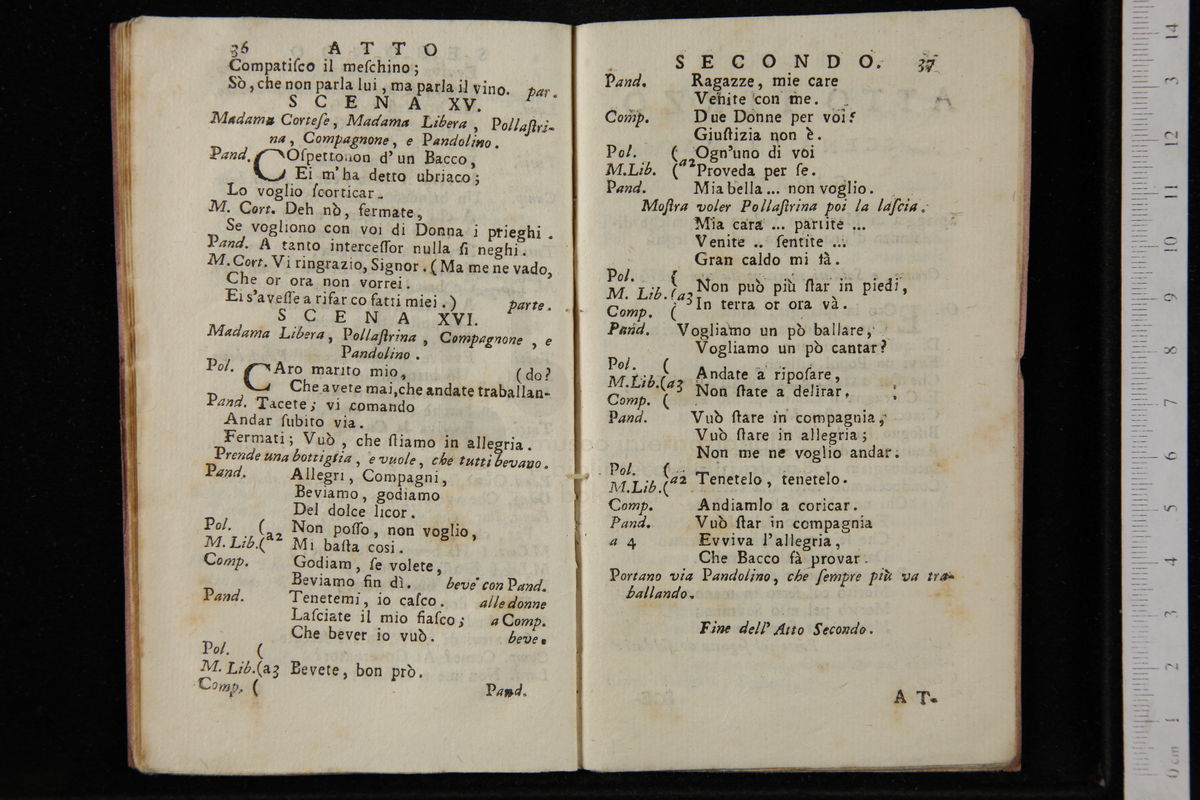 36 ATTO
Compatiſco il meſchino;
Sò, che non parla lui, ma parla il vino. par.
SCENA XV.
Madama Corteſe, Madama Libera, Pollaſtri-
na, Compagnone, e Pandolino.
Pand. COſpettonon d'un Bacco,
Ei m'ha detto ubriaco;
Lo voglio ſcorticar.
M. Cort. Deh nò, fermate,
Se vogliono con voi di Donna i prieghi.
Pand. A tanto interceſſor nulla ſi neghi.
M. Cort. Vi ringrazio, Signor. (Ma me ne vado,
Che or ora non vorrei.
Ei s'aveſſe a rifar co fatti miei.) parte.
SCENA XVI.
Madama Libera, Pollaſtrina, Compagnone, e
Pandolino.
Pol. CAro marito mio, (do?
Che avete mai, che andate traballan-
Pand. Tacete; vi comando
Andar ſubito via.
Fermati; Vuò, che ſtiamo in allegria.
Prende una bottiglia, e vuole, che tutti bevano.
Pand. Allegri, Compagni,
Beviamo, godiamo
Del dolce licor.
Pol. ( Non poſſo, non voglio,
M. Lib. (a2 Mi baſta cosi.
Comp. Godiam, ſe volete,
Beviamo fin dì. beve con Pand.
Pand. Tenetemi, io caſco. alle donne
Laſciate il mio fiaſco; a Comp.
Che bever io vuò. beve.
Pol. (
M. Lib. (a3 Bevete, bon prò.
Comp. (
Pand.
SECONDO. 37
Pand. Ragazze, mie care
Venite con me.
Comp. Due Donne per voi?
Giuſtizia non è.
Pol. ( Ogn'uno di voi
M. Lib. (a2 Proveda per ſe.
Pand. Mia bella... non voglio.
Moſtra voler Pollaſtrina poi la laſcia.
Mia cara ... partite ...
Venite .. ſentite ...
Gran caldo mi fà.
Pol. ( Non può più ſtar in piedi,
M. Lib. (a3 In terra or ora và.
Comp. (
Pand. Vogliamo un pò ballare,
Vogliamo un pò cantar?
Pol. ( Andate a ripoſare,
M. Lib. (a3 Non ſtate a delirar.
Comp. (
Pand. Vuò ſtare in compagnia,
Vuò ſtare in allegria;
Non me ne voglio andar.
Pol. (
M. Lib. (a2 Tenetelo, tenetelo.
Comp. Andiamlo a coricar.
Pand. Vuò ſtar in compagnia
a 4 Evviva l'allegria,
Che Bacco fà provar.
Portano via Pandolino, che ſempre più va tra-
ballando.
Fine dell' Atto Secondo.
AT-
14
3
12
11
10
9
8
7
6
5
4
3
2
1
0 cm